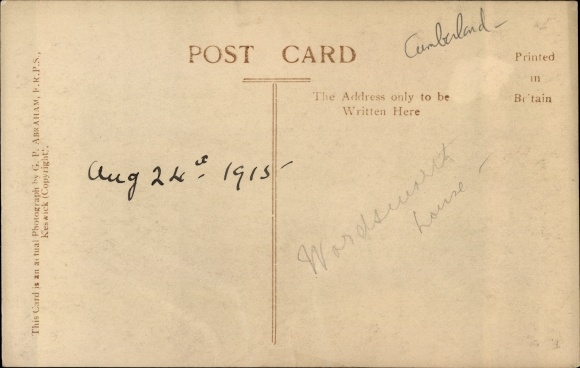 Cumberland -
POST CARD
Printed
in
Britain
The Address only to be
Written Here
Aug 24th 1915 -
Wordsworth
house -
This Card is an actual Photograph by G. P. ABRAHAM, F.R.P.S.,
Keswick (Copyright).